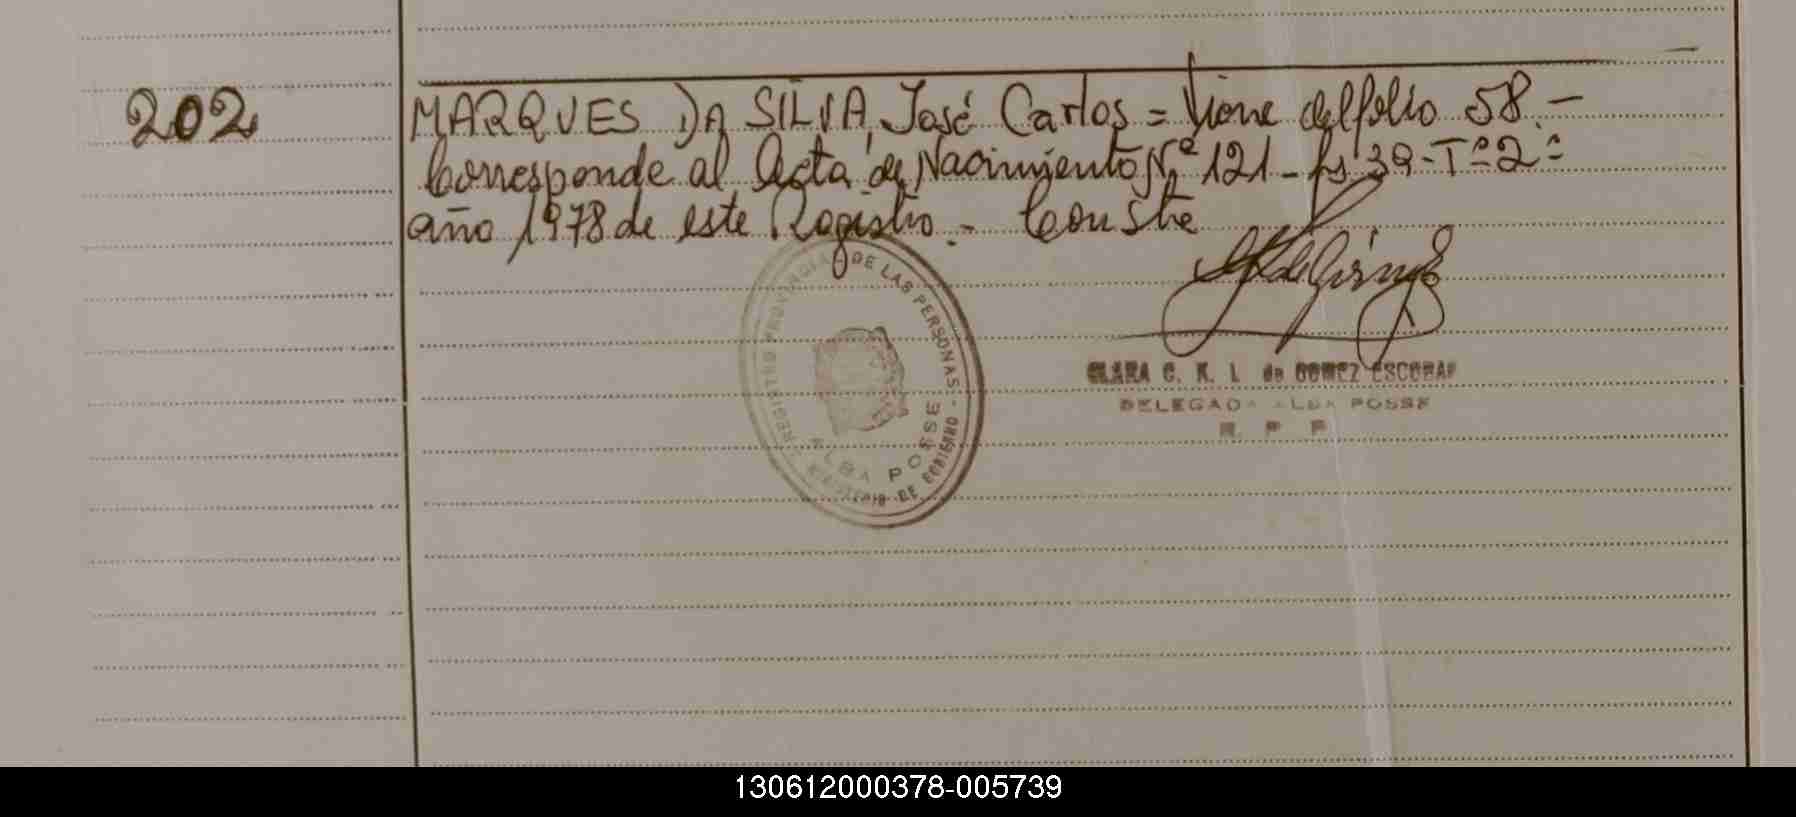 202
MARQUES DA SILVA, José Carlos = Viene del folio 58.-
Corresponde al Acta de Nacimiento Nº 121 - fs 39 - Tº 2º
año 1978 de este Registro.- Conste
REGISTRO PROVINCIAL DE LAS PERSONAS -
ALBA POSSE
MINISTERIO DE GOBIERNO
CLARA C. K. L. de GOMEZ ESCOBAR
DELEGADA ALBA POSSE
R. P. P.
130612000378-005739